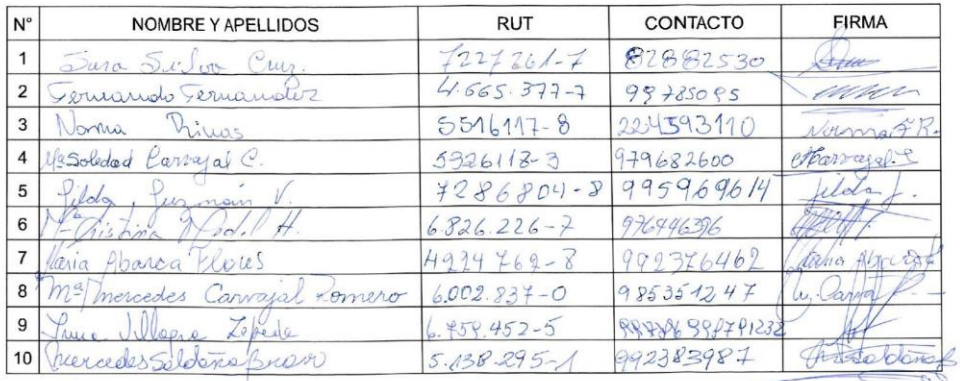 N° NOMBRE Y APELLIDOS RUT CONTACTO FIRMA
1 Sara Silva Cruz. 7227261-7 82882530
2 Fernando Fernandez 4.665.377-7 99785095
3 Norma Rivas 5516117-8 224593110 Norma F R.
4 Mª Soledad Carvajal C. 5326118-3 979682600 Carvajal
5 Jilda Guzmán V. 7286804-8 995969614 Jilda
6 Mª Cristina H. 6.826.226-7 976446396
7 Maria Abarca Flores 4924769-8 992376462
8 Mª Mercedes Carvajal Romero 6.002.837-0 985351247
9 Villagra Zepeda 6.959.452-5
10 Mercedes Saldaña Bravo 5.138.295-1 992383987 Saldaña